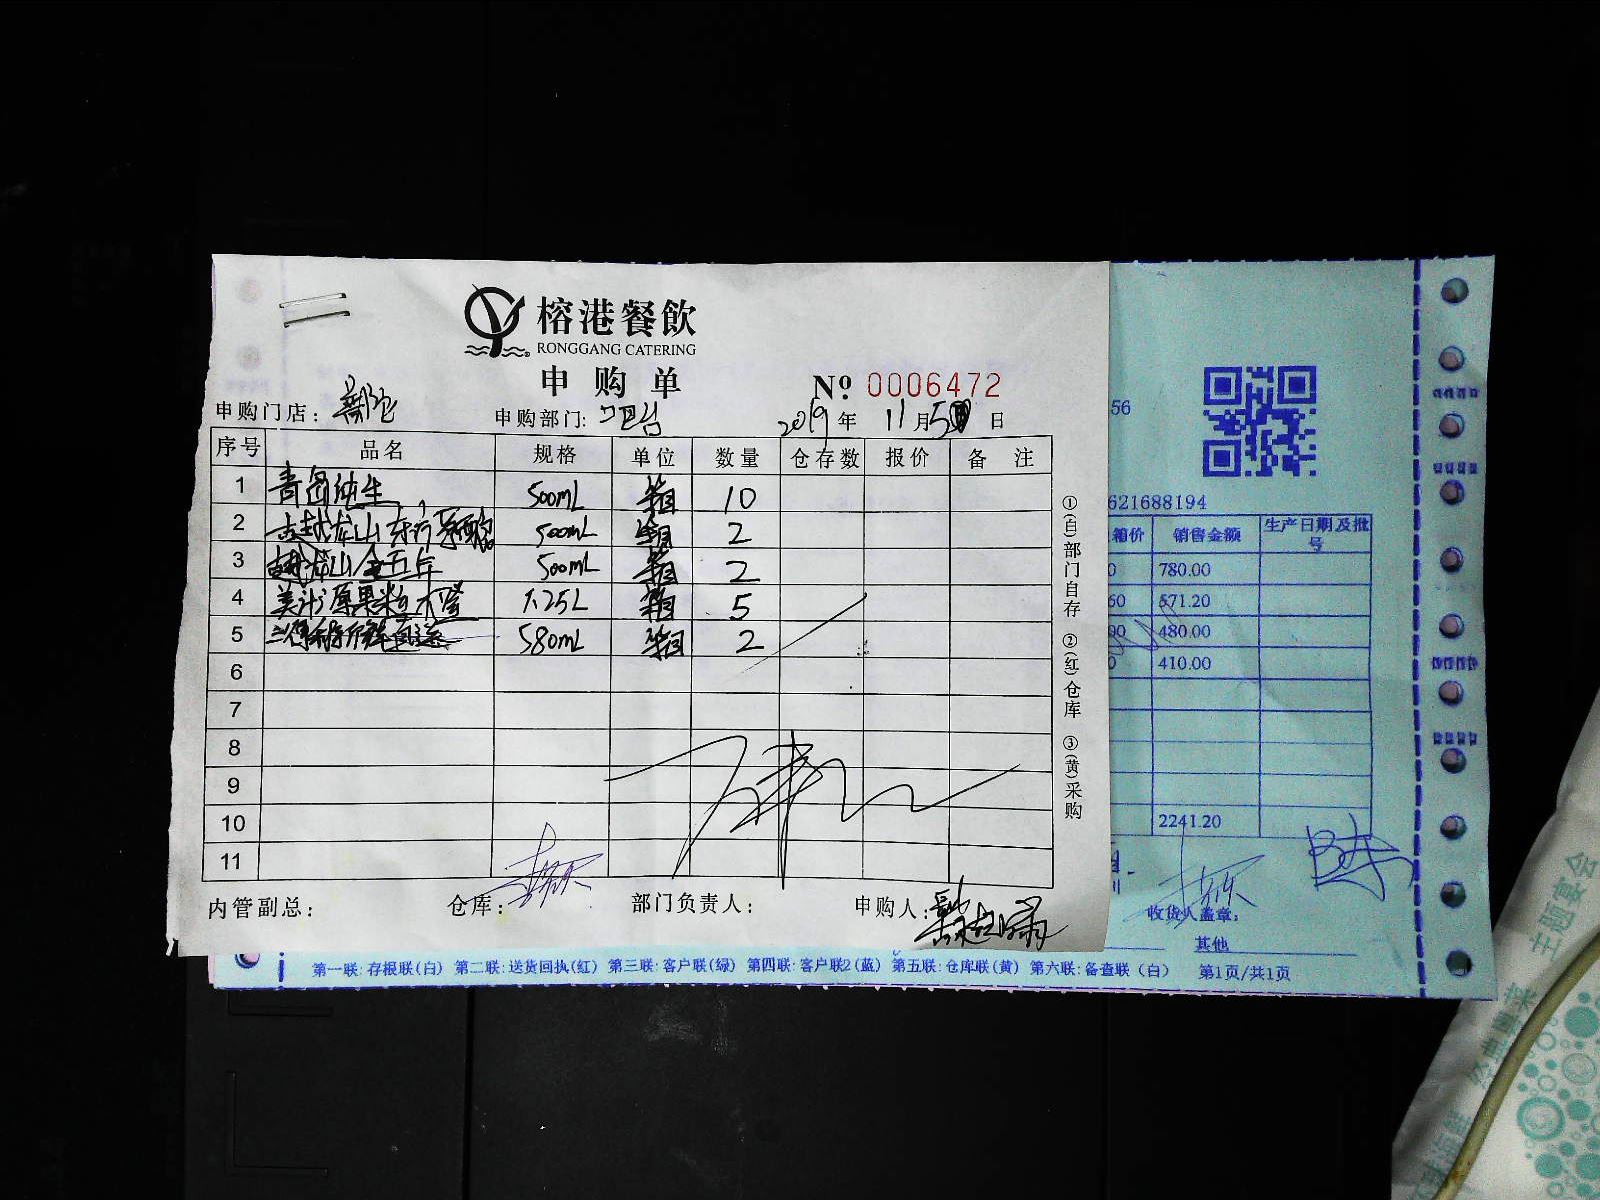 榕港餐飲
RONGGANG CATERING
申购单
№ 0006472
申购门店：
申购部门：吧台
2019年 11月5日
序号 品名 规格 单位 数量 仓存数 报价 备注
1 青岛纯生 500mL 箱 10
2 古越龙山 500mL 箱 2
3 古越龙山金五年 500mL 箱 2
4 美汁源果粒 1.25L 箱 5
5 580mL 箱 2
6
7
8
9
10
11
内管副总：
仓库：
部门负责人：
申购人：
①(白)部门自存 ②(红)仓库 ③(黄)采购
56
621688194
箱价 销售金额 生产日期及批号
0 780.00
60 571.20
00 480.00
0 410.00
2241.20
收货人盖章：
其他
第一联：存根联(白) 第二联：送货回执(红) 第三联：客户联(绿) 第四联：客户联2(蓝) 第五联：仓库联(黄) 第六联：备查联（白） 第1页/共1页
主题宴会